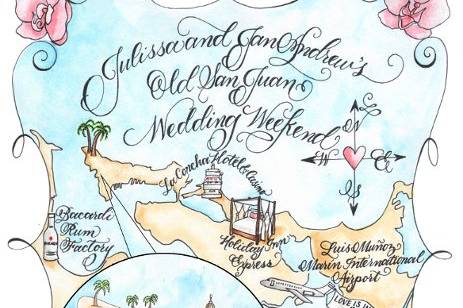 Julissa and Jan Andrew's
Old San Juan
Wedding Weekend
N
W
E
S
La Concha Hotel & Casino
Bacardi
Rum
Factory
Holiday Inn
Express
Luis Muñoz
Marin International
Airport
LOVE IS